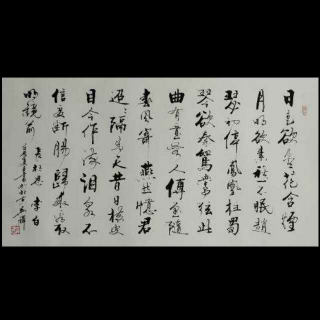 日色欲尽花含煙
月明欲素愁不眠趙
瑟初停鳳凰柱蜀
琴欲奏鴛鴦弦此
曲有意無人傳愿隨
春風寄燕然憶君
迢迢隔青天昔日横波
目今作流泪泉不
信妾断腸歸來看取
明鏡前 長相思 李白